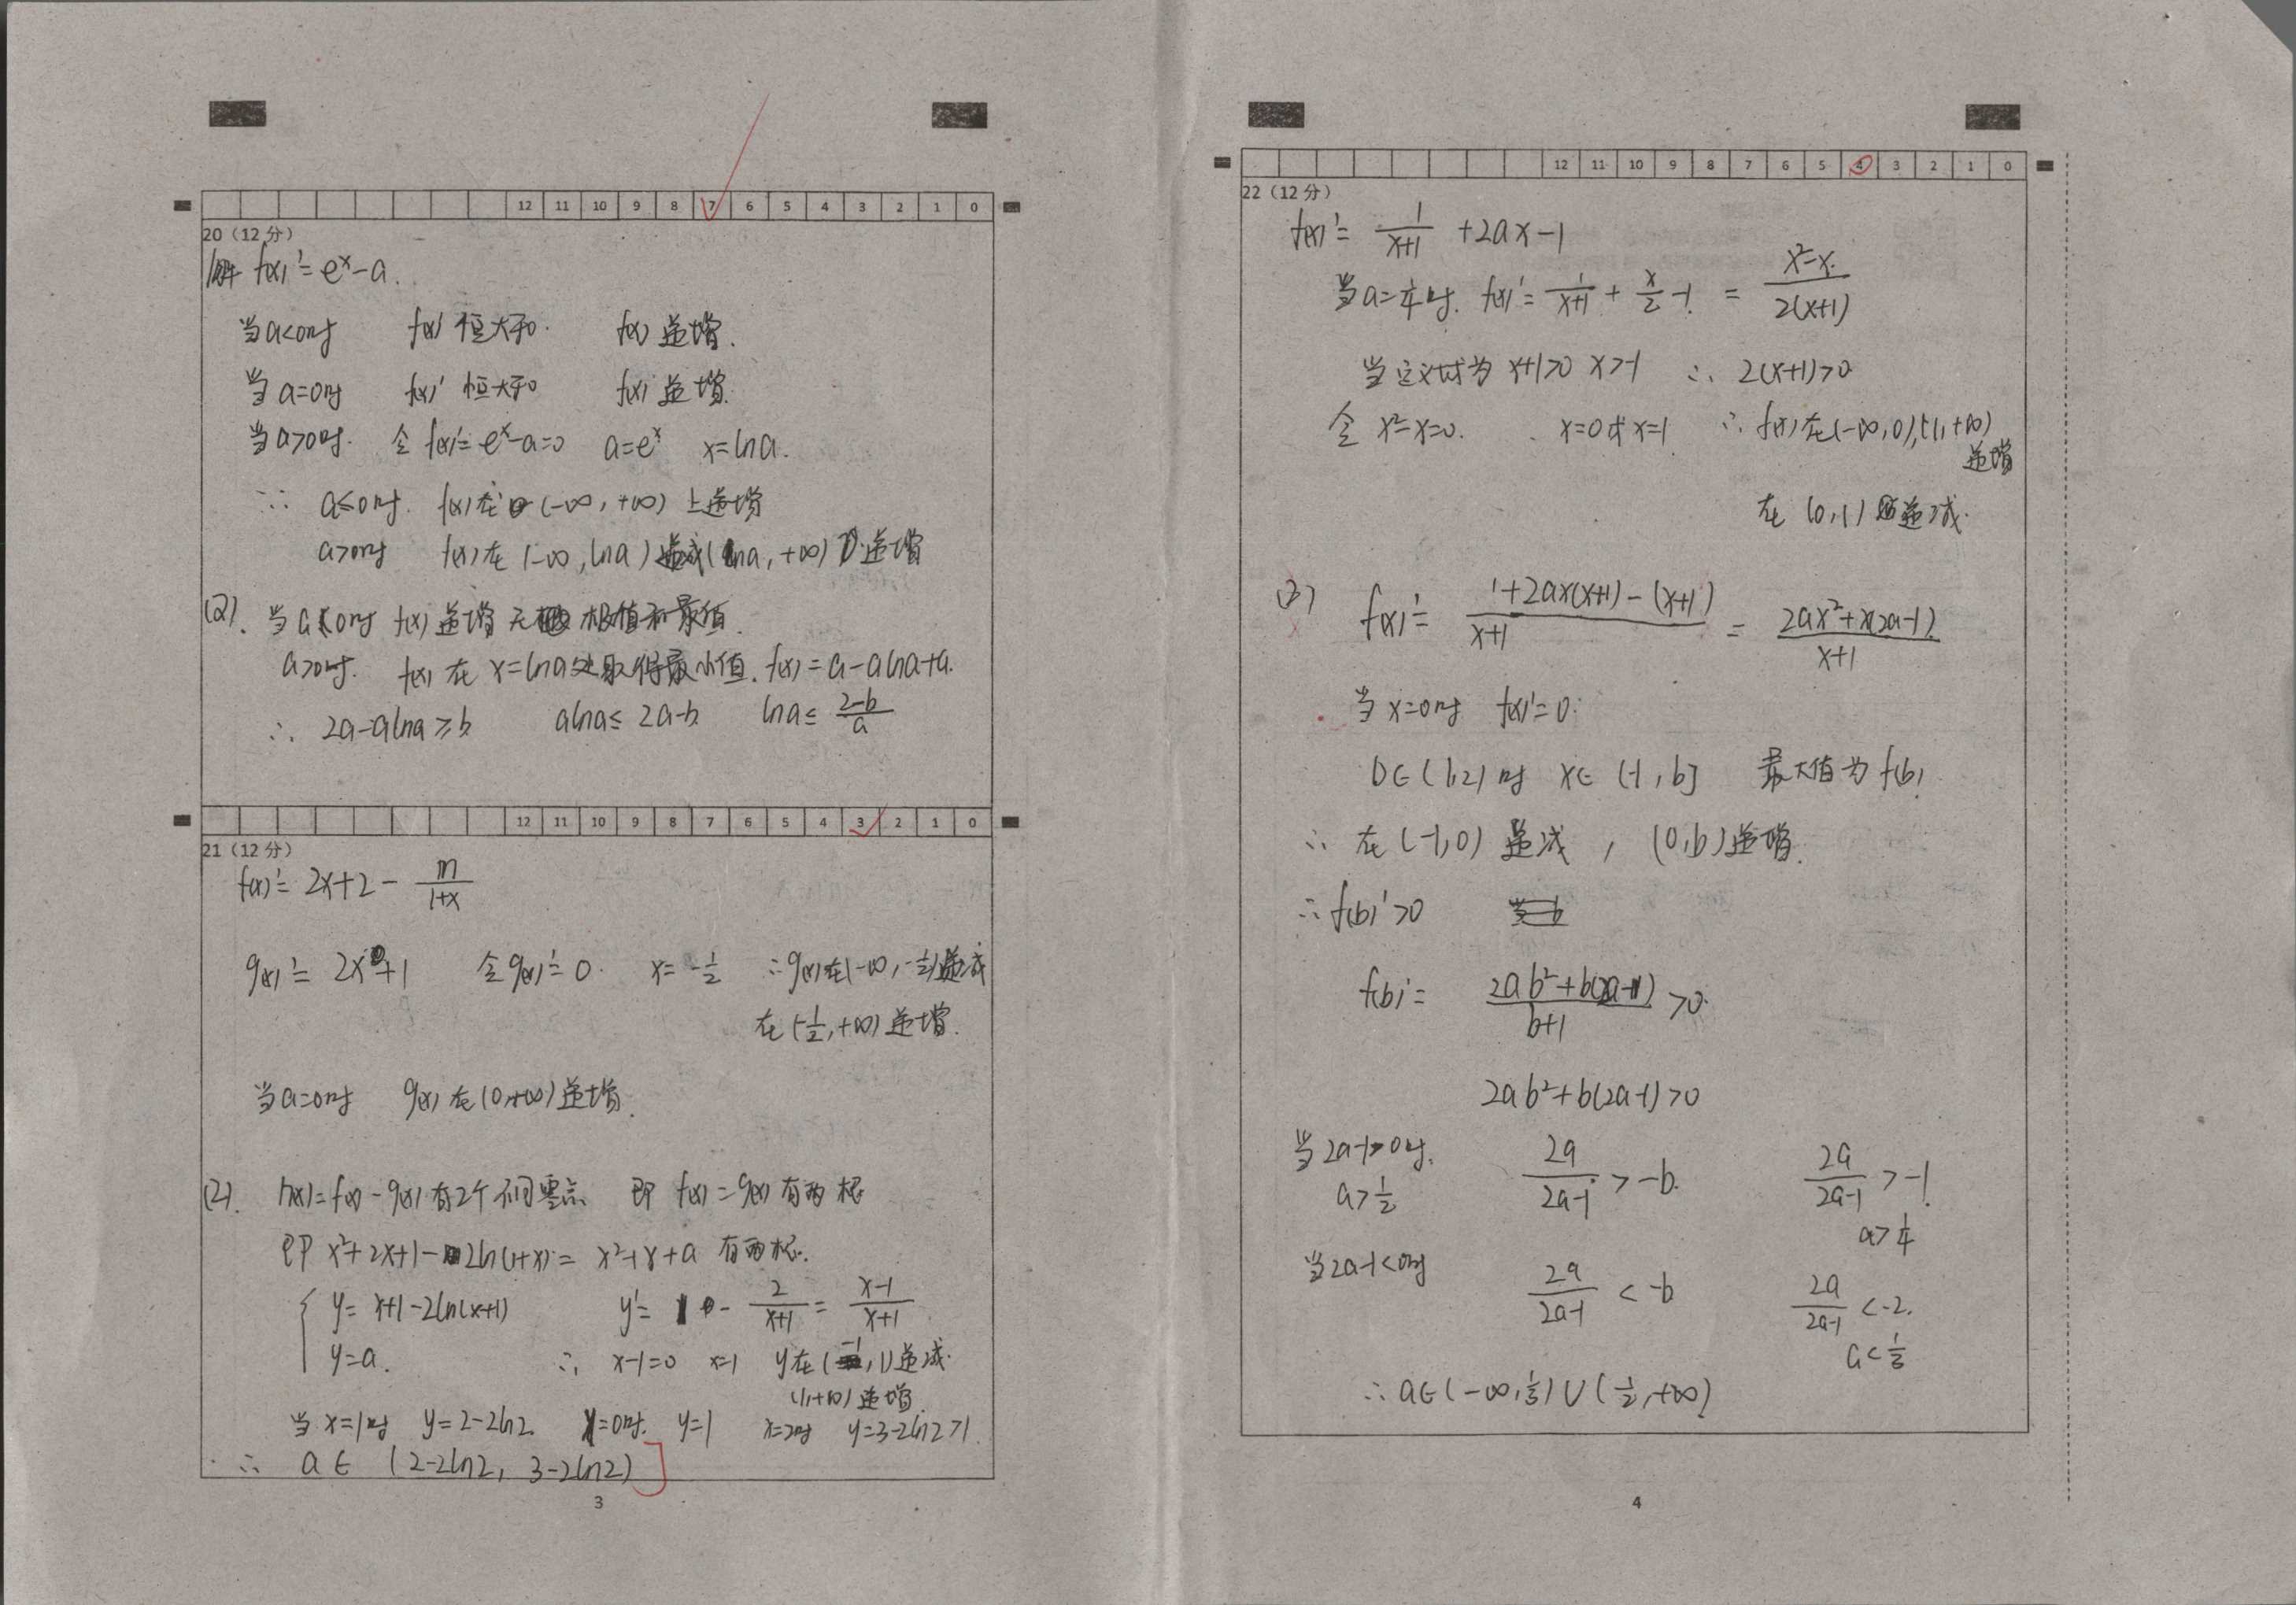 12 11 10 9 8 7 6 5 4 3 2 1 0
20（12 分）
解 f(x)'=eˣ-a.
当a<0时 f(x)'恒大于0. f(x)递增.
当a=0时 f(x)'恒大于0 f(x)递增.
当a>0时. 令f(x)'=eˣ-a=0 a=eˣ x=lna.
∴ a≤0时. f(x)在(-∞,+∞)上递增
a>0时 f(x)在(-∞,lna)递减(lna,+∞)递增
(2). 当a≤0时 f(x)递增无极值和最值.
a>0时. f(x)在x=lna处取得最小值. f(x)=a-alna+a.
∴ 2a-alna≥b alna≤2a-b lna≤(2-b)/a
12 11 10 9 8 7 6 5 4 3 2 1 0
21（12 分）
f(x)'=2x+2-m/(1+x)
g(x)'=2x+1 令g(x)'=0. x=-1/2 ∴g(x)在(-∞,-1/2)递减
在(-1/2,+∞)递增.
当a=0时 g(x)在(0,+∞)递增.
(2). h(x)=f(x)-g(x)有2个不同零点 即 f(x)=g(x)有两根
即 x²+2x+1-2ln(1+x)=x²+x+a 有两根.
y=x+1-2ln(x+1) y'=1-2/(x+1)=(x-1)/(x+1)
y=a. ∴ x-1=0 x=1 y在(-1,1)递减.
(1,+∞)递增.
当x=1时 y=2-2ln2. x=0时. y=1 x=2时 y=3-2ln2>1.
∴ a∈(2-2ln2, 3-2ln2)]
3
12 11 10 9 8 7 6 5 4 3 2 1 0
22（12 分）
f(x)'=1/(x+1)+2ax-1
当a=1/4时. f(x)'=1/(x+1)+x/2-1.=(x²-x)/(2(x+1))
当定义域为x+1>0 x>-1 ∴ 2(x+1)>0
令x²-x=0. x=0或x=1 ∴ f(x)在(-∞,0),(1,+∞)
递增
在(0,1)递减.
(2) f(x)'=(1+2ax(x+1)-(x+1))/(x+1)=(2ax²+x(2a-1))/(x+1)
当x=0时 f(x)'=0.
b∈(1,2)时 x∈(-1,b] 最大值为f(b).
∴ 在(-1,0)递减, (0,b)递增.
∴ f(b)'>0
f(b)'=(2ab²+b(2a-1))/(b+1)>0.
2ab²+b(2a-1)>0
当2a-1>0时. 2a/(2a-1)>-b. 2a/(2a-1)>-1.
a>1/2 a>1/4
当2a-1<0时 2a/(2a-1)<-b 2a/(2a-1)<-2.
a<1/3
∴ a∈(-∞,1/3)∪(1/2,+∞)
4